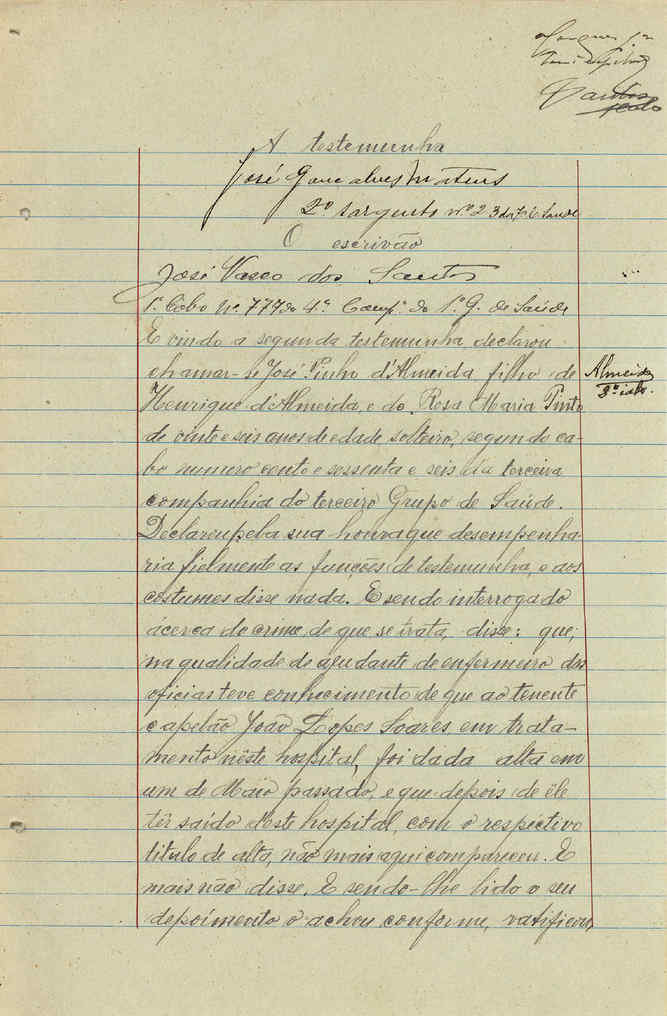 A testemunha
José Gonçalves Mateus
2º sargento nº 23 da
O escrivão
José Vasco dos Santos
1º Cabo nº 777 da 4ª Comp.ª do 1º G. de Saúde
E vindo a segunda testemunha declarou
chamar-se José Pinho d'Almeida filho de
Almeida
2º cabo.
Henrique d'Almeida, e de Rosa Maria Pinto
de vinte e seis anos de edade solteiro, segundo ca-
bo numero cento e sessenta e seis da terceira
companhia do terceiro Grupo de Saúde.
Declarou pela sua honra que desempenha-
ria fielmente as funções de testemunha, e aos
costumes disse nada. E sendo interrogado
ácerca do crime de que se trata, disse: que,
na qualidade de ajudante de enfermeiro dos
oficias teve conhecimento de que ao tenente
capelão João Lopes Soares em trata-
mento nêste hospital, foi dada alta em
um de Maio passado, e que depois de êle
têr saído deste hospital, com o respectivo
titulo de alta, não mais aqui compareceu. E
mais não disse. E sendo-lhe lido o seu
depoimento o achou conforme, ratificou,